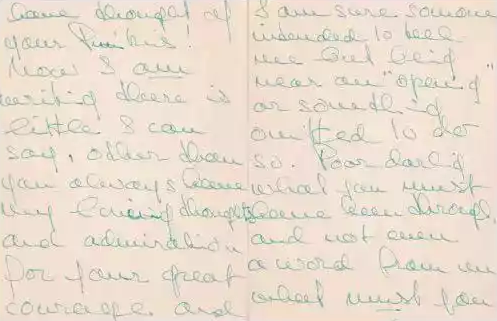 have thought of
your 
Now I am
writing there is
little I can
say, other than
you always have
my loving thoughts
and admiration
for your great
courage. and
I am sure someone
intended to tell
me but being
near an "opening"
or something
omitted to do
so. Poor darling
what you must
have been through,
and not even
a word from me
what must you